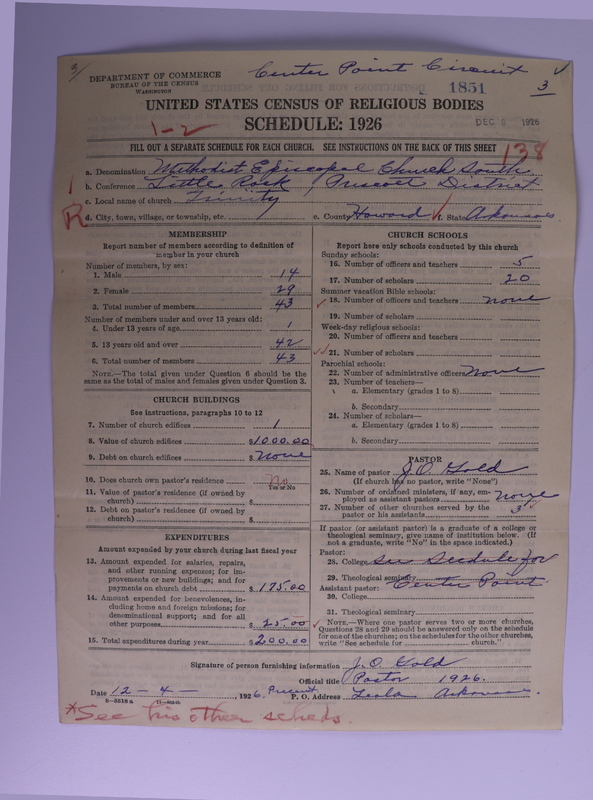 3/
Center Point Circuit
DEPARTMENT OF COMMERCE
BUREAU OF THE CENSUS
WASHINGTON
1851
3
UNITED STATES CENSUS OF RELIGIOUS BODIES
SCHEDULE: 1926
DEC 6 1926
1-2
FILL OUT A SEPARATE SCHEDULE FOR EACH CHURCH. SEE INSTRUCTIONS ON THE BACK OF THIS SHEET
138
a. Denomination Methodist Episcopal Church South
b. Conference Little Rock / Prescott District
c. Local name of church Trinity
R
d. City, town, village, or township, etc.
e. County Howard f. State Arkansas
MEMBERSHIP
Report number of members according to definition of member in your church
Number of members, by sex:
1. Male 14
2. Female 29
3. Total number of members 43
Number of members under and over 13 years old:
4. Under 13 years of age 1
5. 13 years old and over 42
6. Total number of members 43
NOTE.—The total given under Question 6 should be the same as the total of males and females given under Question 3.
CHURCH BUILDINGS
See instructions, paragraphs 10 to 12
7. Number of church edifices 1
8. Value of church edifices $1000.00
9. Debt on church edifices $ None
10. Does church own pastor's residence No
Yes or No
11. Value of pastor's residence (if owned by church) $
12. Debt on pastor's residence (if owned by church) $
EXPENDITURES
Amount expended by your church during last fiscal year
13. Amount expended for salaries, repairs, and other running expenses; for improvements or new building; and for payments on church debt $ 175.00
14. Amount expended for benevolences, including home and foreign missions; for denominational support; and for all other purposes $ 25.00
15. Total expenditures during year $ 200.00
CHURCH SCHOOLS
Report here only schools conducted by this church
Sunday schools:
16. Number of officers and teachers 5
17. Number of scholars 20
Summer vacation Bible schools:
18. Number of officers and teachers none
19. Number of scholars
Week-day religious schools:
20. Number of officers and teachers
21. Number of scholars
Parochial schools:
22. Number of administrative officers None
23. Number of teachers—
a. Elementary (grades 1 to 8)
b. Secondary
24. Number of scholars—
a. Elementary (grades 1 to 8)
b. Secondary
PASTOR
25. Name of pastor J. O. Gold
(If church has no pastor, write "None")
26. Number of ordained ministers, if any, employed as assistant pastors none
27. Number of other churches served by the pastor or his assistants 3
If pastor (or assistant pastor) is a graduate of a college or theological seminary, give name of institution below. (If not a graduate, write "No" in the space indicated.)
Pastor:
28. College see Scedule for
29. Theological seminary Center Point
Assistant pastor:
30. College
31. Theological seminary
NOTE.—Where one pastor serves two or more churches, Questions 28 and 29 should be answered only on the schedule for one of the churches; on the schedules for the other churches, write "See schedule for ______ church."
Signature of person furnishing information J. O. Gold
Official title Pastor 1926.
Date 12-4-, 1926. Present P. O. Address Arkansas.
8-3518 a
*See his other scheds.